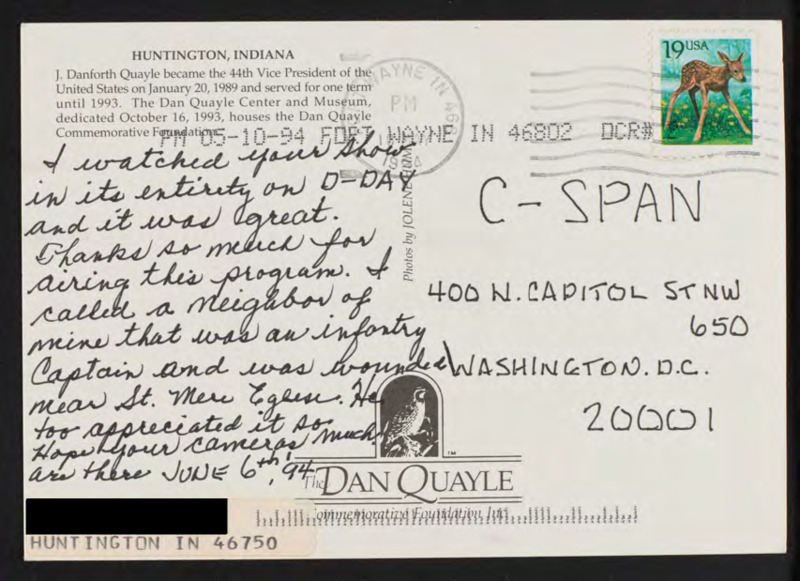 HUNTINGTON, INDIANA
J. Danforth Quayle became the 44th Vice President of the
United States on January 20, 1989 and served for one term
until 1993. The Dan Quayle Center and Museum,
dedicated October 16, 1993, houses the Dan Quayle
Commemorative Foundation.
PM 05-10-94 FORT WAYNE IN 46802 DCR#
WAYNE IN 468
PM
19 USA
I watched your show
in its entirety on D-DAY
and it was great.
Thanks so much for
airing this program. I
called a neighbor of
mine that was an infantry
Captain and was wounded
near St. Mere Eglise. He
too appreciated it so
much.
Hope your cameras
are there JUNE 6th, '94
Photos by JOLENE
C-SPAN
400 N. CAPITOL ST NW
650
WASHINGTON. D.C.
20001
TM
The DAN QUAYLE
Commemorative Foundation, Inc.
HUNTINGTON IN 46750